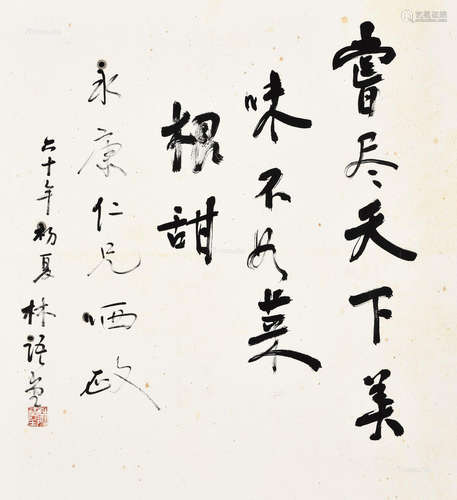 嘗尽天下美
味不如菜
根甜
永康仁兄哂政
六十年初夏 林語堂